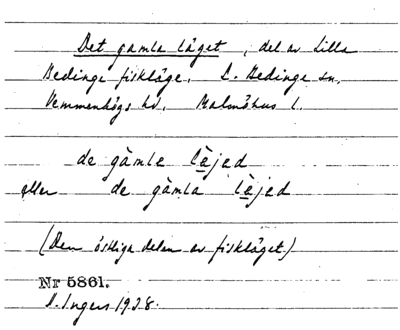 Det gamla läget, del av Lilla
Bedinge fiskläge. L. Bedinge sn,
Vemmenhögs hd, Malmöhus l.
de gàmle lèjed
eller de gàmla lèjed
(Den östliga delen av fiskläget)
Nr 5861.
I. Ingers 1938.